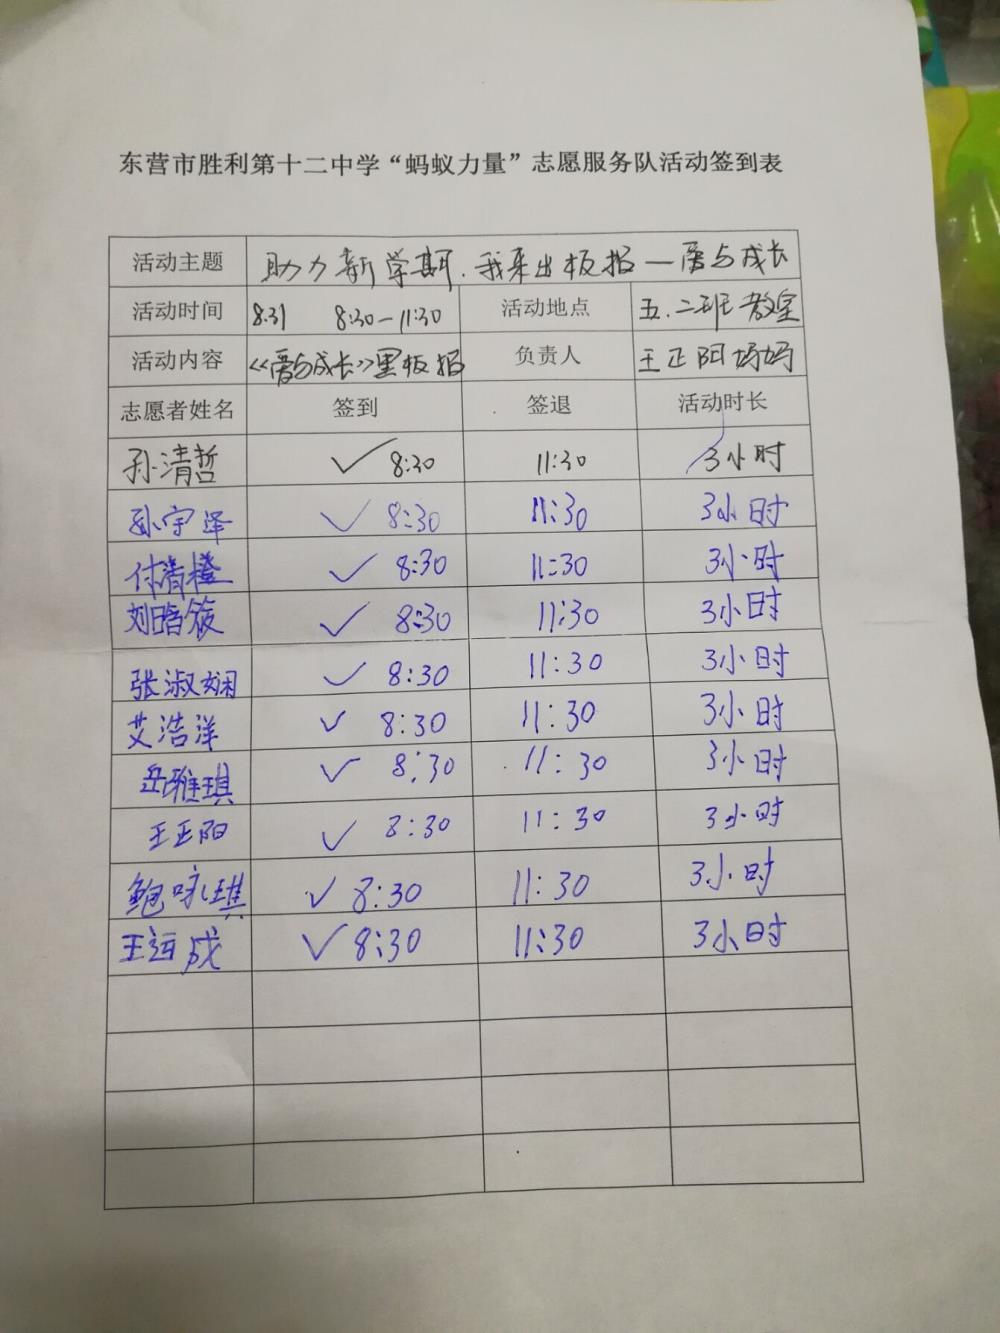 东营市胜利第十二中学“蚂蚁力量”志愿服务队活动签到表
活动主题 助力新学期.我来出板报一爱与成长
活动时间 8.31 8:30-11:30 活动地点 五.二班教室
活动内容 《爱与成长》黑板报 负责人 王正阳妈妈
志愿者姓名 签到 签退 活动时长
孙清哲 ✓ 8:30 11:30 3小时
孙宇泽 ✓ 8:30 11:30 3小时
付清橙 ✓ 8:30 11:30 3小时
刘晗筱 ✓ 8:30 11:30 3小时
张淑娴 ✓ 8:30 11:30 3小时
艾浩洋 ✓ 8:30 11:30 3小时
岳雅琪 ✓ 8:30 11:30 3小时
王正阳 ✓ 8:30 11:30 3小时
鲍咏琪 ✓ 8:30 11:30 3小时
王运成 ✓ 8:30 11:30 3小时